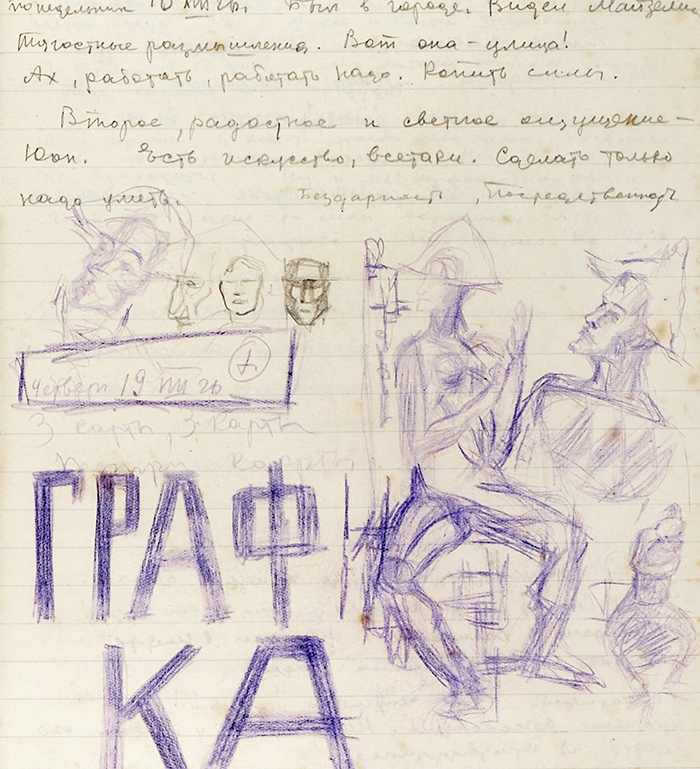 понедельник 10 VIII 26. Был в городе. Видел
Тягостные размышления. Вот она – улица!
Ах, работать, работать надо. Копить силы.
Второе, радостное и светлое ощущение –
Юон. Есть искусство, всетаки. Сделать только
надо уметь. Бездарность, Посредственность
четверг 19 VIII 26
3 карты, 3 карты
карты
ГРАФИ
КА